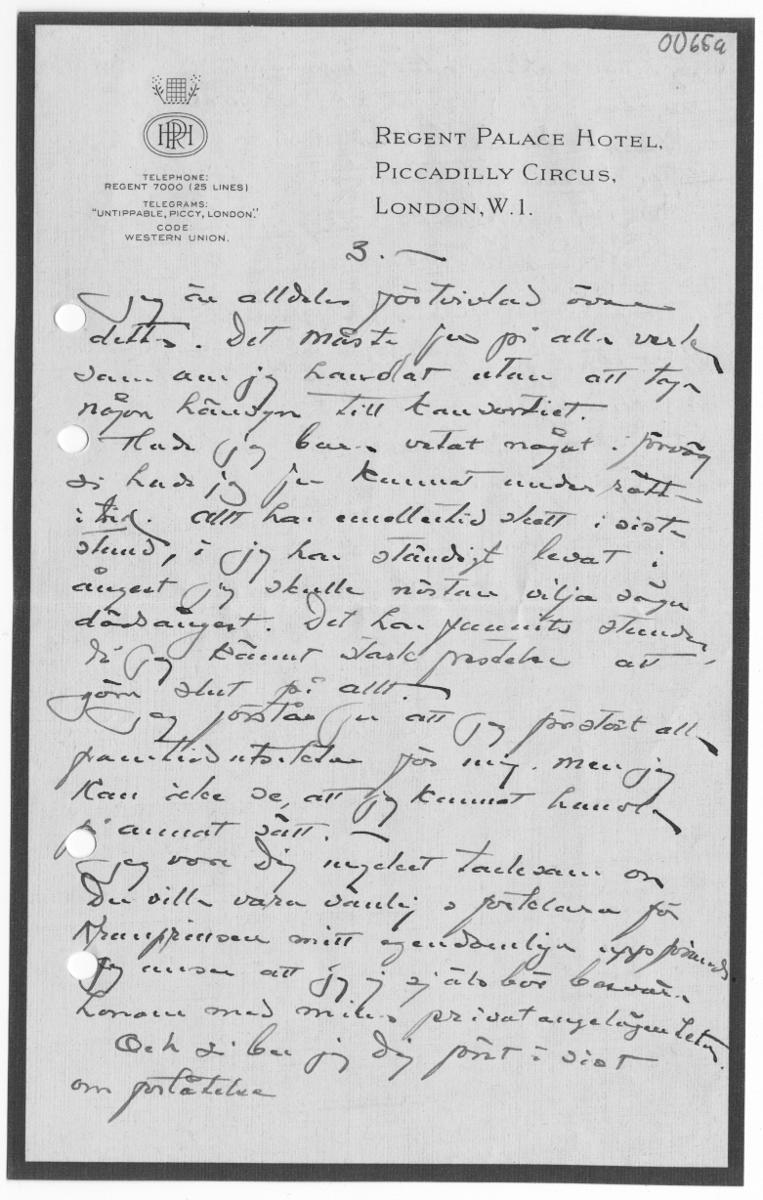 00659
HPRH
TELEPHONE:
REGENT 7000 (25 LINES)
TELEGRAMS:
"UNTIPPABLE, PICCY, LONDON."
CODE
WESTERN UNION.
REGENT PALACE HOTEL,
PICCADILLY CIRCUS,
LONDON, W.1.
3. —
Jag är alldeles förtvivlad över
detta. Det måste ju på alla verka
som om jag handlat utan att taga
någon hänsyn till
Hade jag bara vetat något i förväg
så hade jag ju kunnat underrätta
i tid. Allt har emellertid skett i sista
stund, så jag har ständigt levat i
ångest jag skulle nästan vilja säga
dödsångest. Det har funnits stunder,
då jag känt stark frestelse att
göra slut på allt. —
Jag förstår ju att jag förstört alla
framtidsutsikter för mig. Men jag
kan icke se, att jag kunnat handla
på annat sätt. —
Jag vore Dig mycket tacksam om
Du ville vara vänlig o förklara för
Kronprinsen mitt egendomliga uppförande.
Jag anser att jag ej själv bör besvära
honom med mina privatangelägenheter.
Och så ber jag Dig först o sist
om förlåtelse